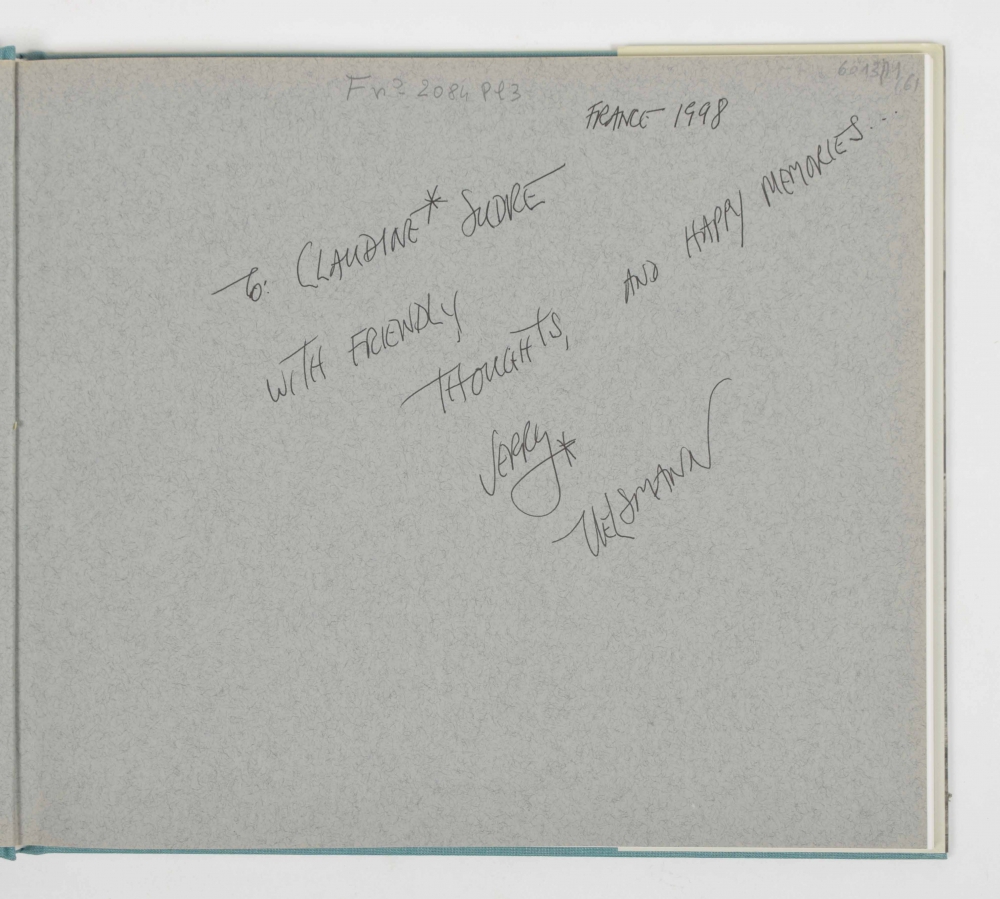 Fn2 2084 Pl3
FRANCE 1998
TO: CLAUDINE* SUDRE
WITH FRIENDLY
THOUGHTS,
AND HAPPY MEMORIES...
JERRY*
UELSMANN